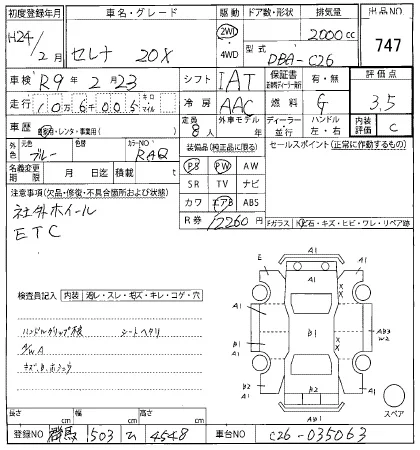 初度登録年月 車名・グレード 駆動 ドア数・形状 排気量 出品NO
H24/2月 セレナ 20X 2WD・4WD 2000cc 747
型式 DBA-C26
車検 R9年2月23 シフト IAT 保証書 有・無 評価点
走行 10万6005 キロ マイル 冷房 AAC 燃料 G 3.5
車歴 自家用・レンタ・事業用( ) 定員 8人 外車モデル 年 ディーラー 並行 ハンドル 左・右 内装評価 C
外色 元色 ブルー 色替 カラーNO RAQ 装備品(純正品に限る) セールスポイント(正常に作動するもの)
名義変更期限 月 日迄 積載 t PS PW AW
注意事項(欠品・修復・不具合箇所および状態) SR TV ナビ
社外ホイール カワ エアB ABS
ETC R券 12260円 Fガラス 飛石・キズ・ヒビ・ワレ・リペア跡
E A1 A1
検査員記入 内装 汚レ・スレ・モス・キレ・コゲ・穴
A1 X X A1
ハンドルグリップ シートヘタリ B1 AB3
A/W A X X W2
キズ、B、
B2 A1 B2 A1
長さ cm 幅 cm 高さ cm AB1 スペア
登録NO 群馬 503 ム 4548 車台NO C26-035063